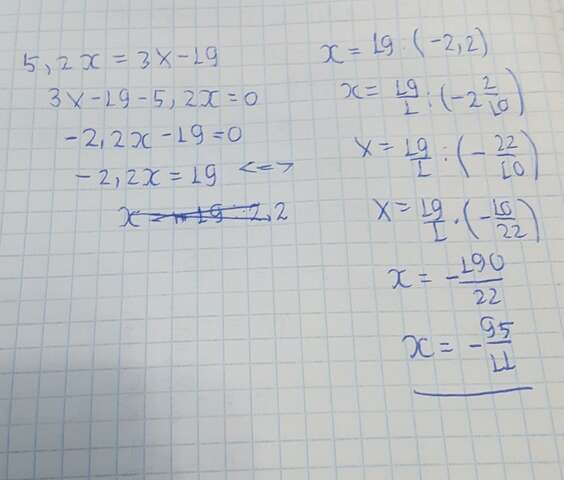 5,2x = 3x-19
3x-19-5,2x=0
-2,2x-19=0
-2,2x = 19 <=>
x = 19 : 2,2
x = 19 : (-2,2)
x = 19/1 : (-2 2/10)
x = 19/1 : (- 22/10)
x = 19/1 · (- 10/22)
x = - 190/22
x = - 95/11